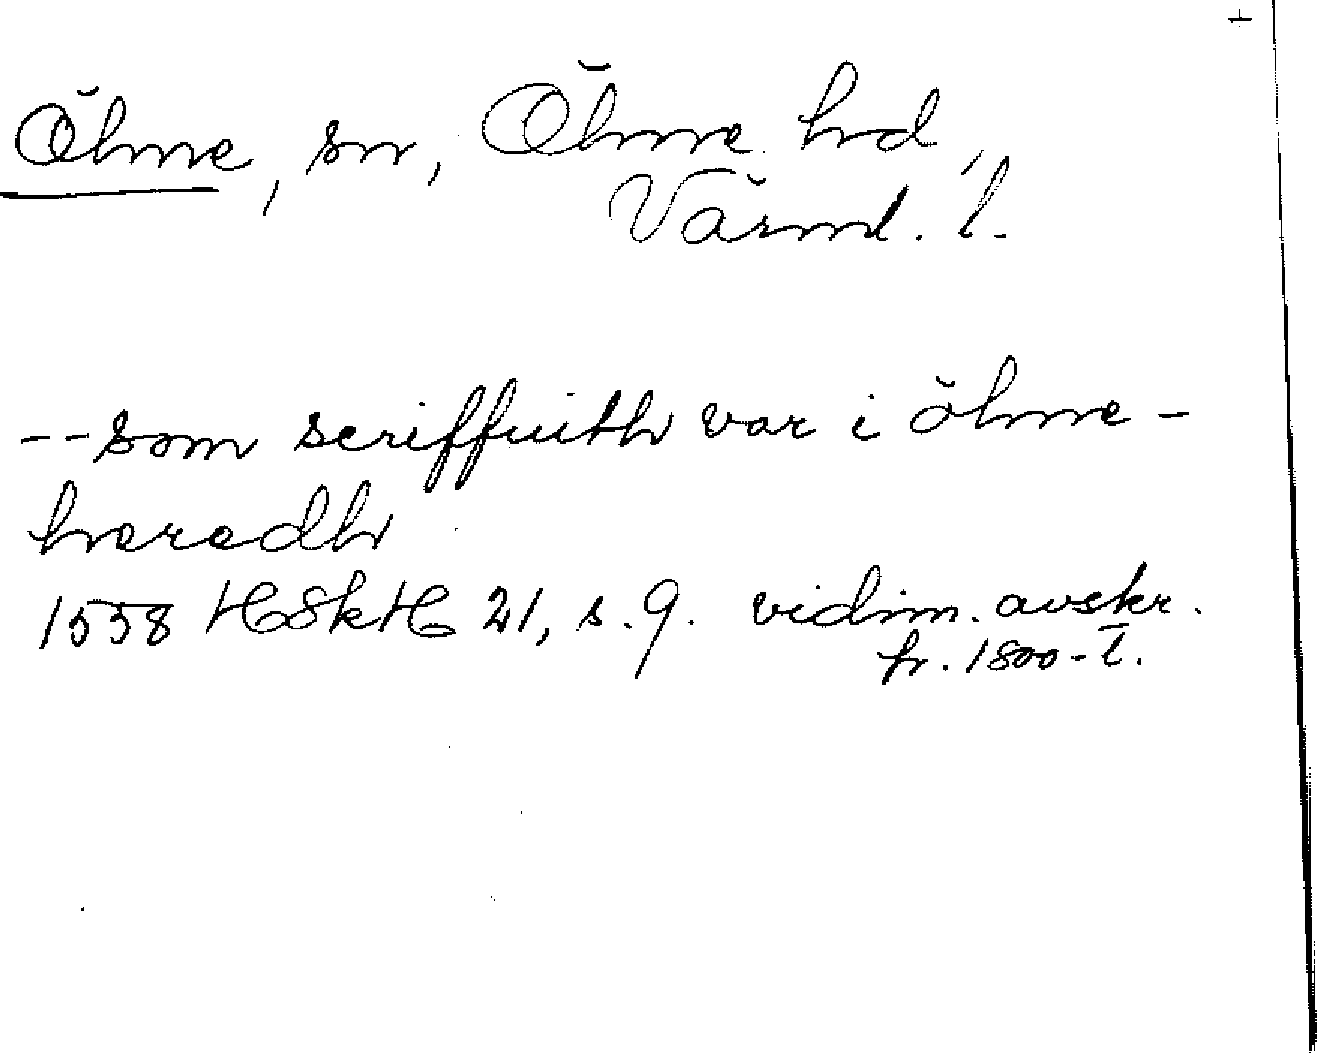 +
Ölme, sn, Ölme hd,
Värml. l.
--som scriffuith var i ölme-
heredh
1558 HSkH 21, s. 9. vidim. avskr.
fr. 1800-t.